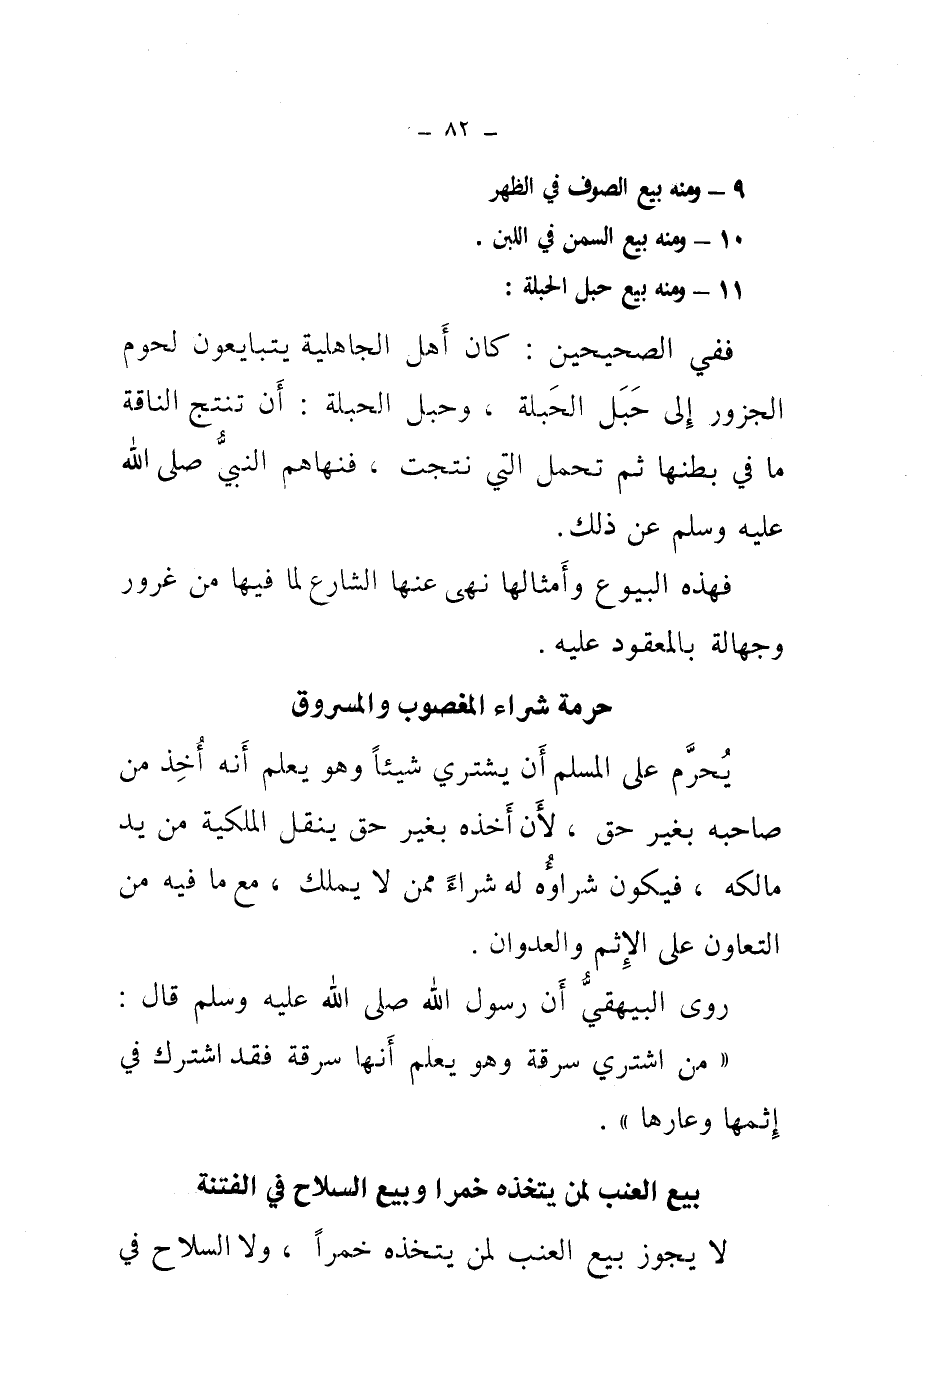 – ٨٢ –
٩ – ومنه بيع الصوف في الظهر
١٠ – ومنه بيع السمن في اللبن .
١١ – ومنه بيع حبل الحبلة :
ففي الصحيحين : كان أَهل الجاهلية يتبايعون لحوم
الجزور إلى حَبَل الحَبلة ، وحبل الحبلة : أَن تنتج الناقة
ما في بطنها ثم تحمل التي نتجت ، فنهاهم النبيُّ صلى الله
عليه وسلم عن ذلك.
فهذه البيوع وأَمثالها نهى عنها الشارع لما فيها من غرور
وجهالة بالمعقود عليه .
حرمة شراء المغصوب والمسروق
يُحرَّم على المسلم أَن يشتري شيئاً وهو يعلم أَنه أُخِذ من
صاحبه بغير حق ، لأَن أَخذه بغير حق ينقل الملكية من يد
مالكه ، فيكون شراوُّه له شراءً ممن لا يملك ، مع ما فيه من
التعاون على الإِثم والعدوان .
روى البيهقيُّ أَن رسول الله صلى الله عليه وسلم قال :
« من اشتري سرقة وهو يعلم أَنها سرقة فقد اشترك في
إِثمها وعارها » .
بيع العنب لمن يتخذه خمرا وبيع السلاح في الفتنة
لا يجوز بيع العنب لمن يتخذه خمراً ، ولا السلاح في